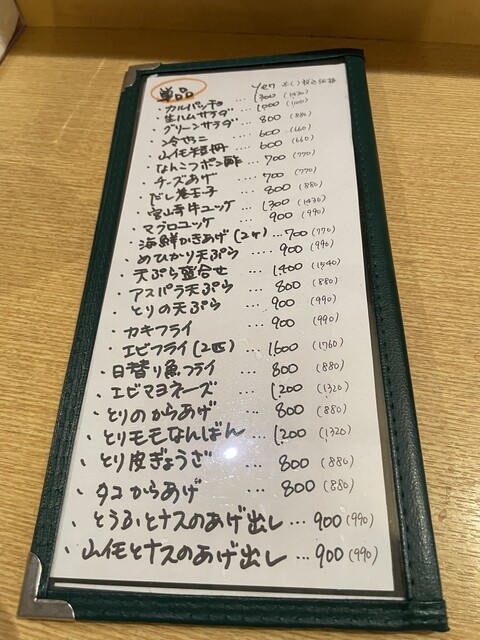 単品 Yen ※( )税込価格
・カルパッチョ … 1300 (1430)
・生ハムサラダ … 1000 (1100)
・グリーンサラダ … 800 (880)
・冷やっこ … 600 (660)
・山芋短冊 … 600 (660)
・なんこつポン酢 … 700 (770)
・チーズあげ … 700 (770)
・だし巻玉子 … 800 (880)
・宮崎牛ユッケ … 1300 (1430)
・マグロユッケ … 900 (990)
・海鮮かきあげ(2ヶ) … 700 (770)
・めひかり天ぷら … 900 (990)
・天ぷら盛合せ … 1400 (1540)
・アスパラ天ぷら … 800 (880)
・とりの天ぷら … 900 (990)
・カキフライ … 900 (990)
・エビフライ(2匹) … 1600 (1760)
・日替り魚フライ … 800 (880)
・エビマヨネーズ … 1200 (1320)
・とりのからあげ … 800 (880)
・とりモモなんばん … 1200 (1320)
・とり皮ぎょうざ … 800 (880)
・タコからあげ … 800 (880)
・とうふとナスのあげ出し … 900 (990)
・山芋とナスのあげ出し … 900 (990)